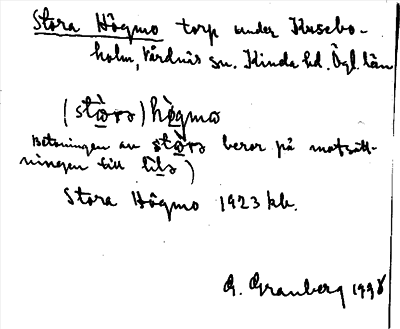 Stora Högmo torp under Kusebo-
holm, Vårdnäs sn. Kinda hd. Ögl. län
(stòrɔ) hògmω
Betoningen av stòrɔ beror på motsätt-
ningen till lilɔ)
Stora Högmo 1923 kb.
G. Granberg 1998